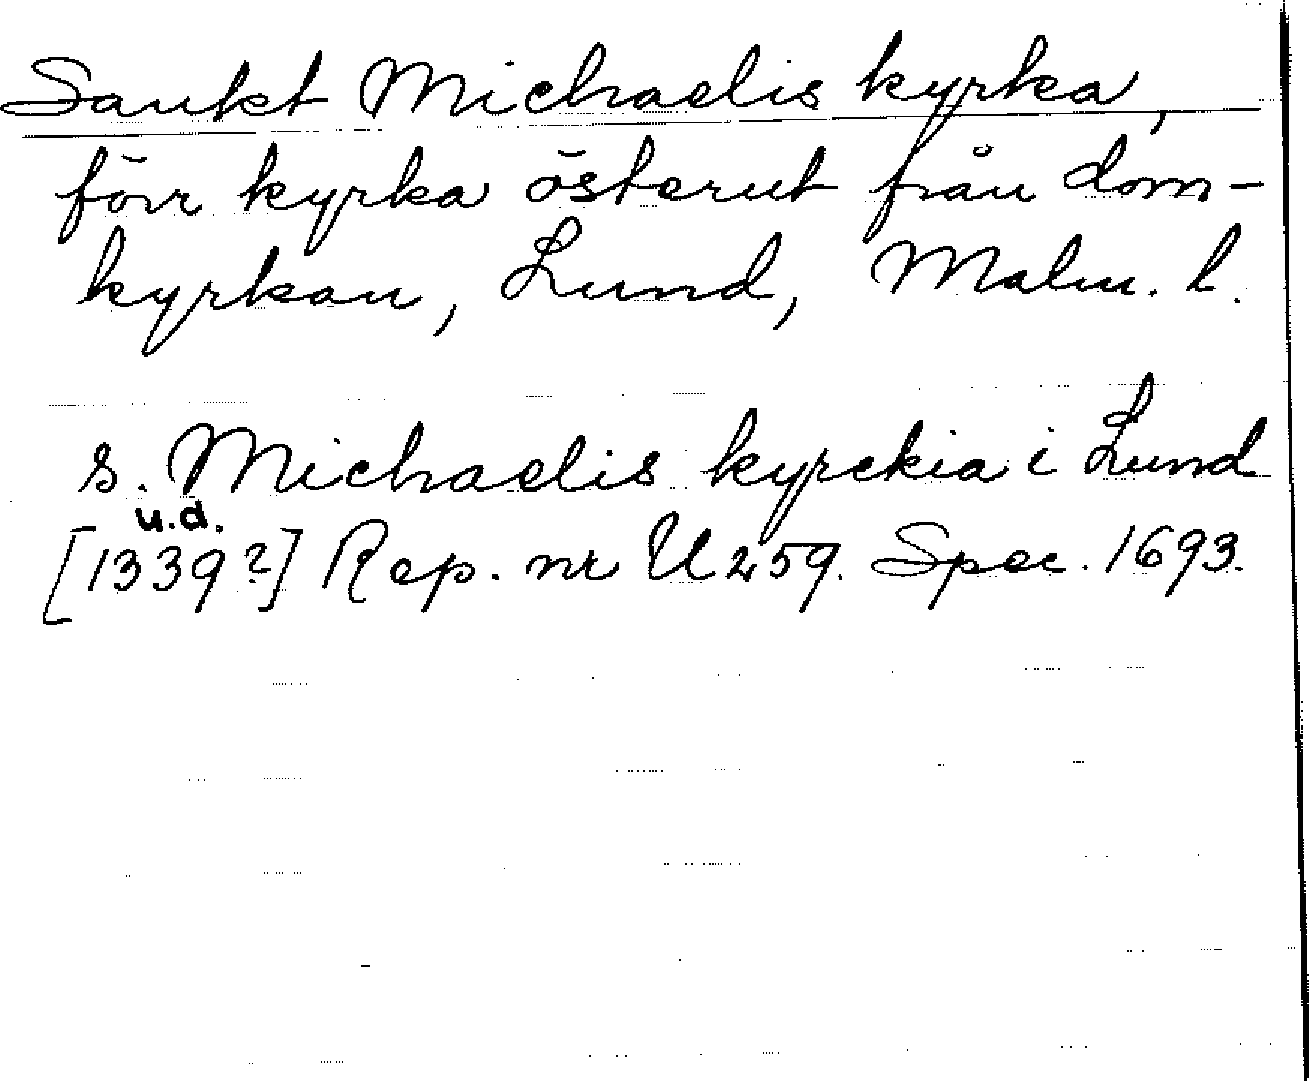 Sankt Michaelis kyrka,
förr kyrka österut från dom-
kyrkan, Lund, Malm. l.
s. Michaelis kyrckia i Lund
u.d.
[1339?] Rep. nr U259. Spec. 1693.